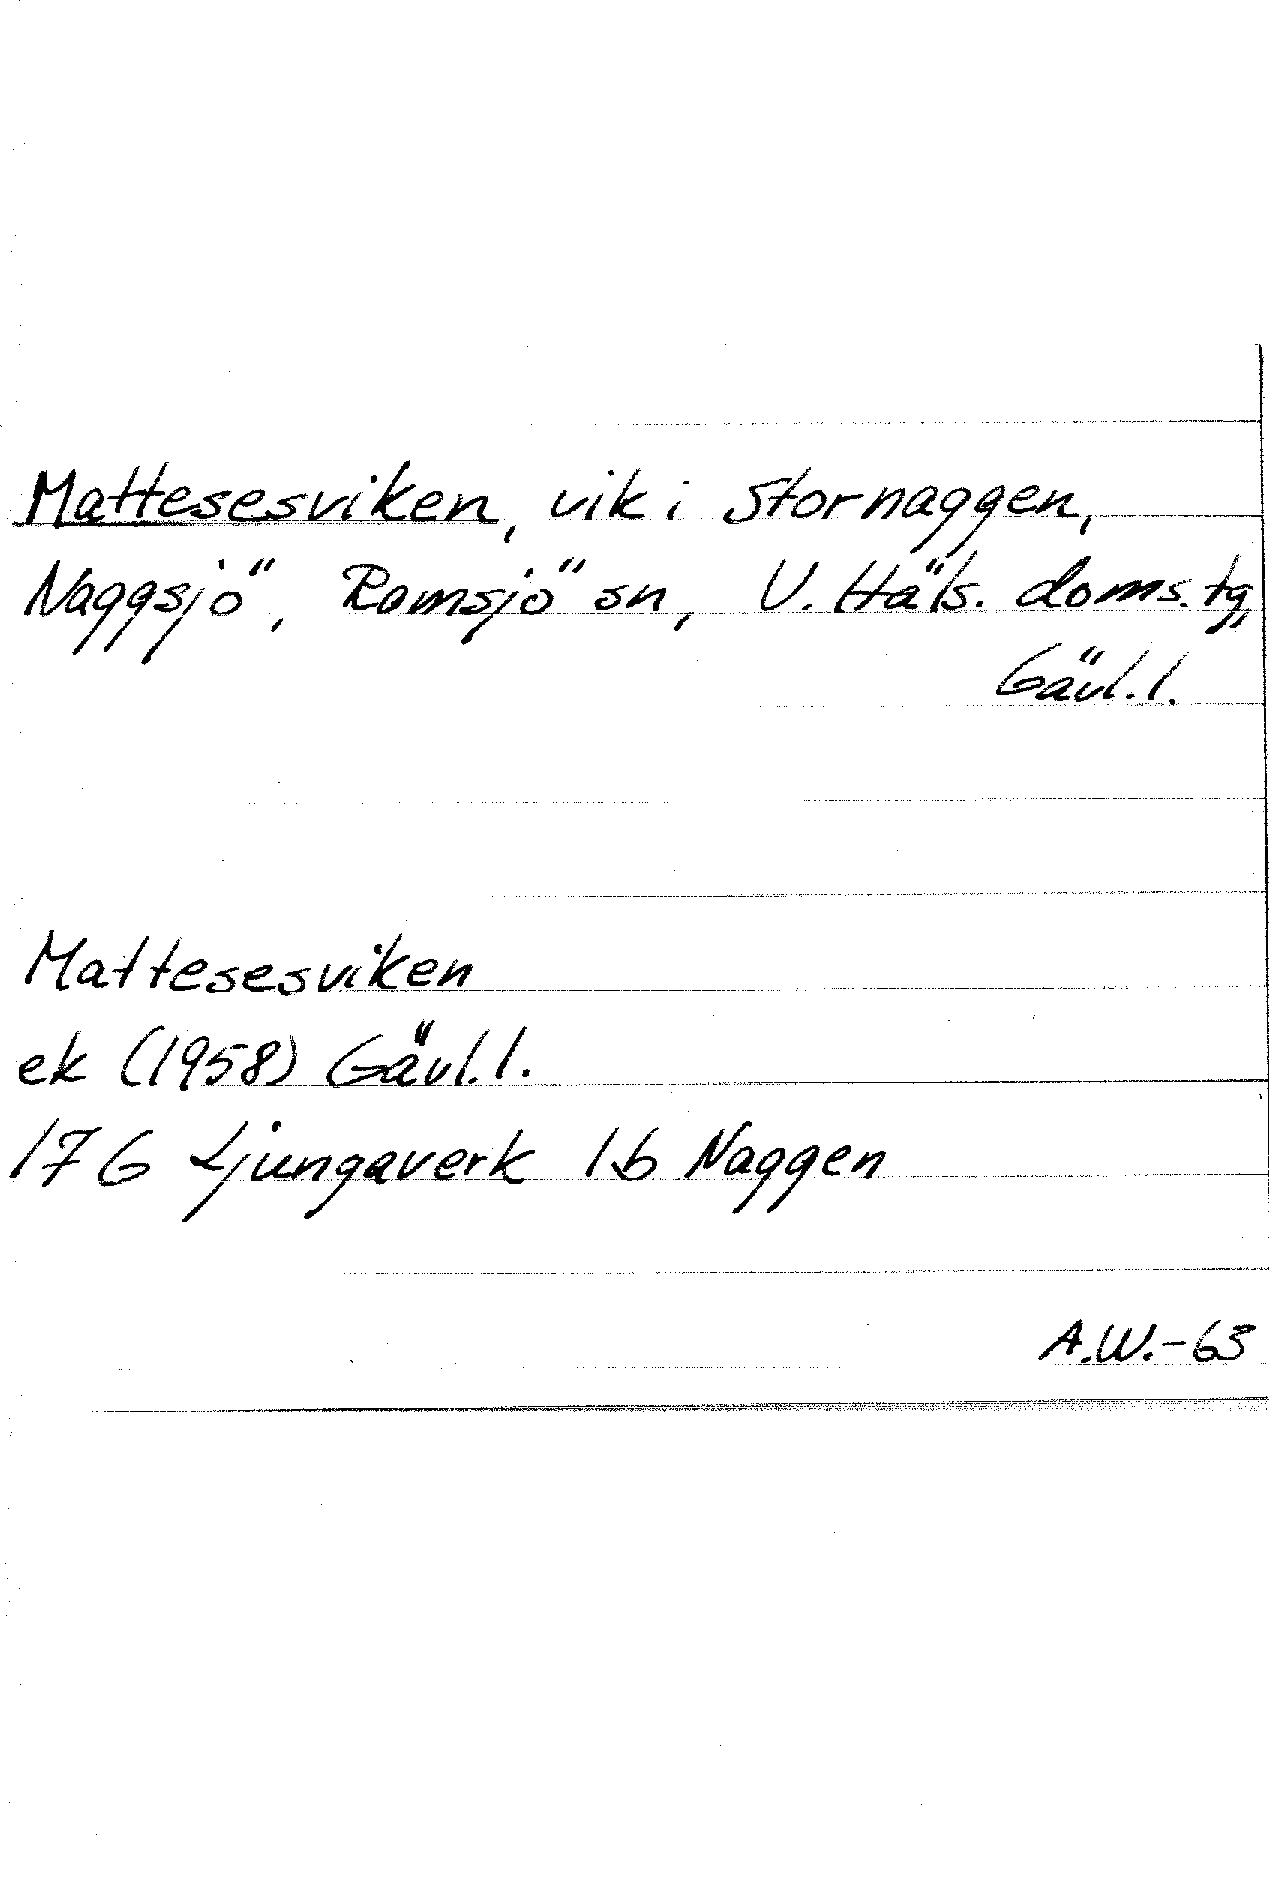 Mattesesviken, vik i Stornaggen,
Naggsjö, Ramsjö sn, V. Häls. doms. tg,
Gävl. l.
Mattesesviken
ek (1958) Gävl. l.
17G Ljungaverk 1b Naggen
A.W.-63